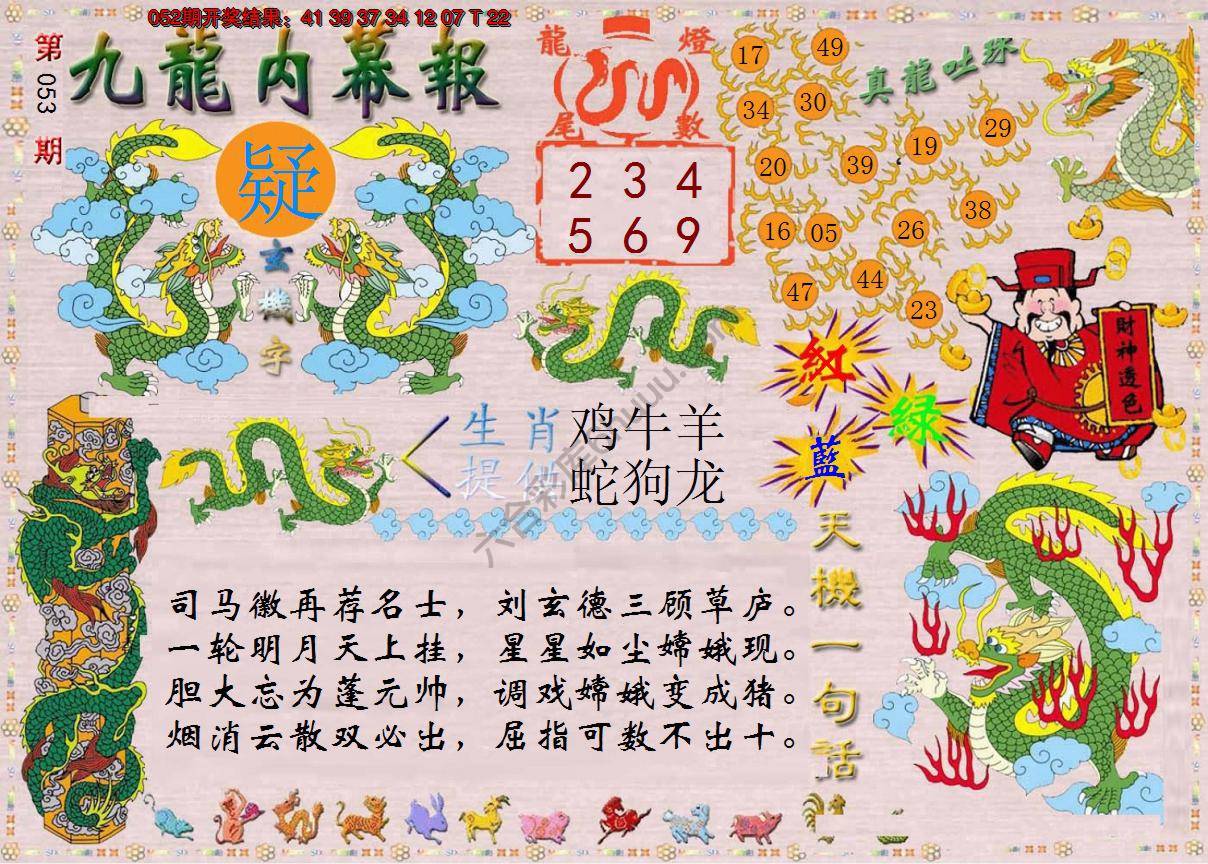 052期开奖结果：41 39 37 34 12 07 T 22
第053期
九龍内幕報
疑
玄機字
龍燈尾數
2 3 4
5 6 9
真龍吐珠
17
49
34
30
20
39
19
29
16
05
26
38
47
44
23
財神透色
紅
綠
藍
生肖 鸡牛羊
提供 蛇狗龙
天機一句話
司马徽再荐名士，刘玄德三顾草庐。
一轮明月天上挂，星星如尘嫦娥现。
胆大忘为蓬元帅，调戏嫦娥变成猪。
烟消云散双必出，屈指可数不出十。